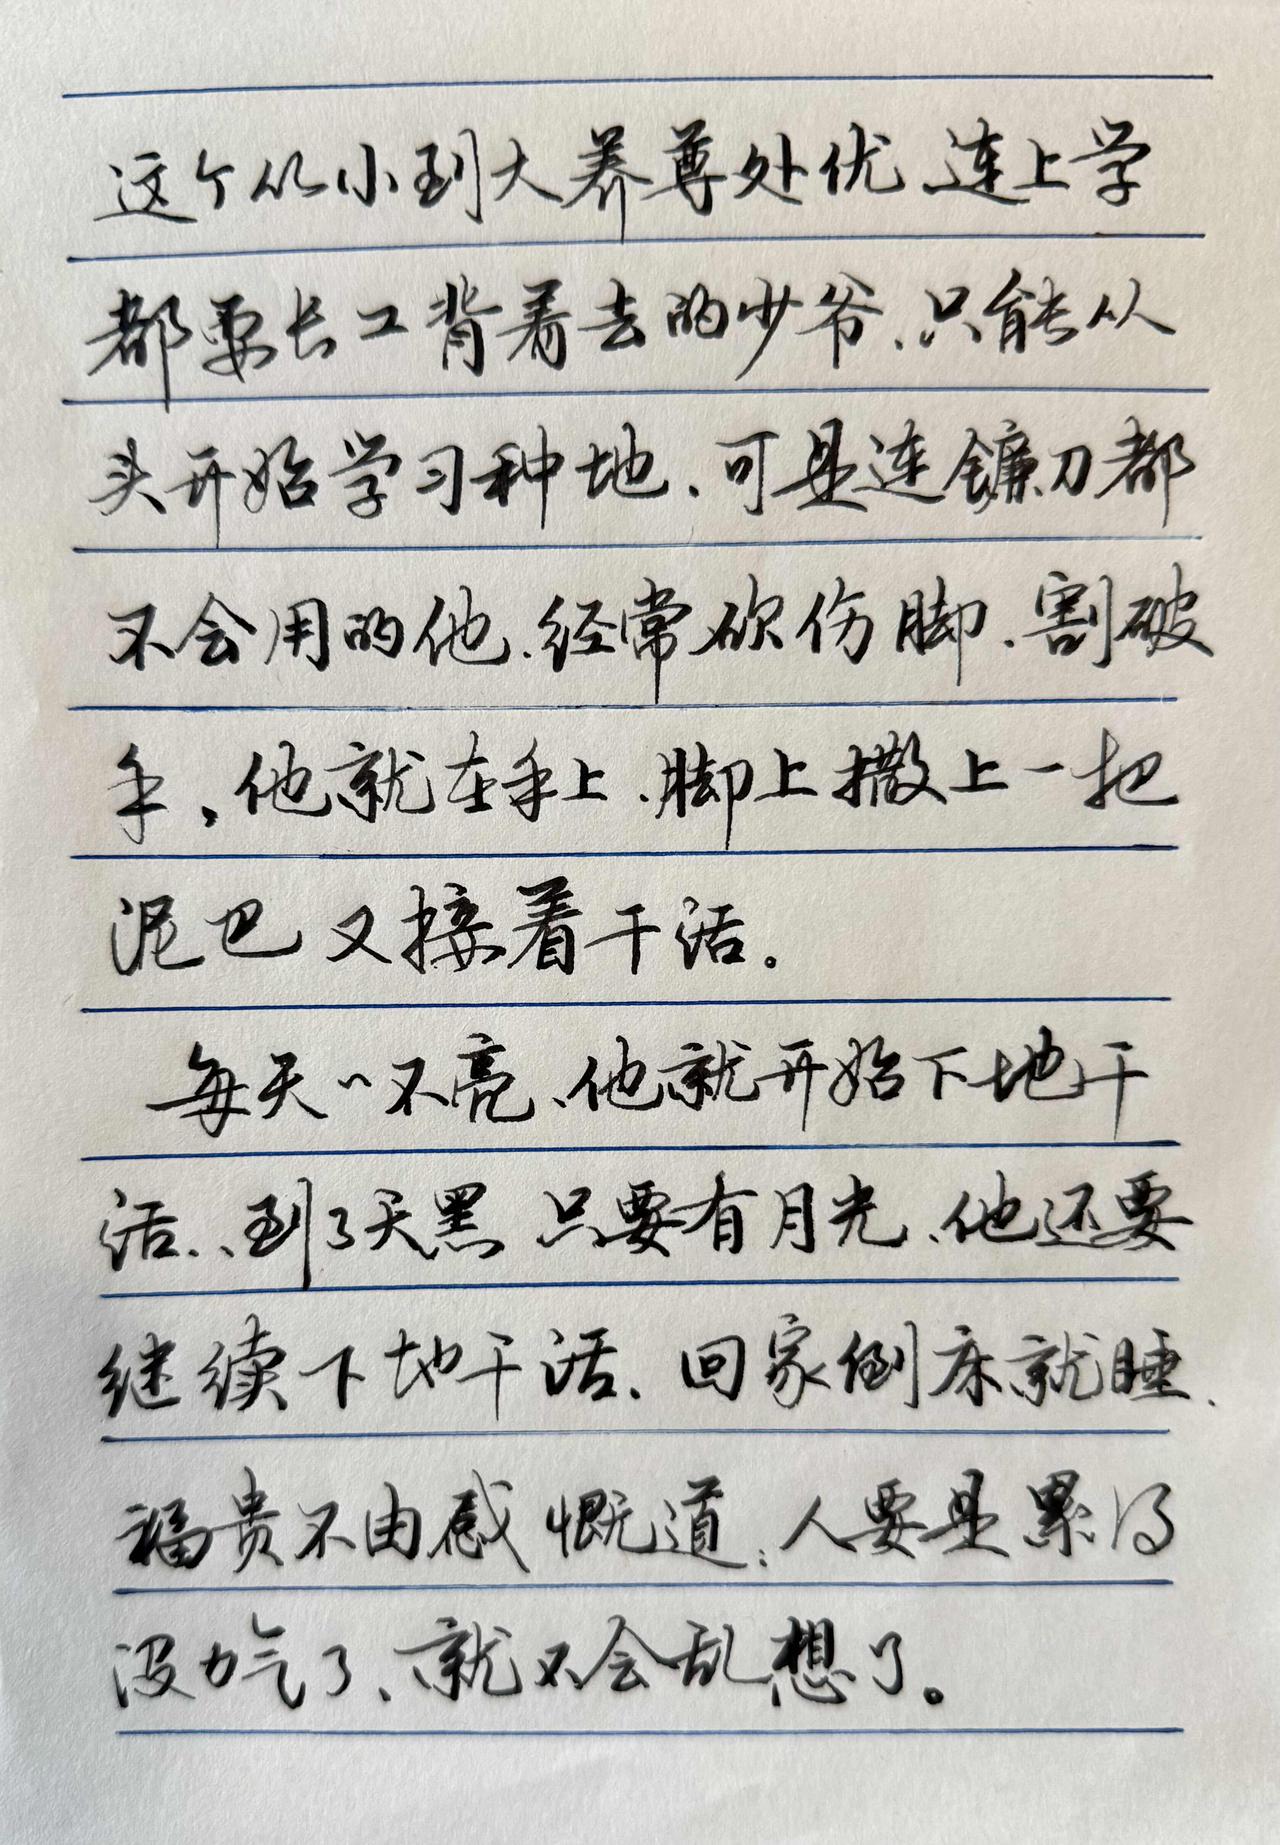 这个从小到大养尊处优、连上学
都要长工背着去的少爷，只能从
头开始学习种地，可是连镰刀都
不会用的他，经常砍伤脚，割破
手，他就在手上、脚上撒上一把
泥巴又接着干活。
每天天不亮，他就开始下地干
活，到了天黑只要有月光，他还要
继续下地干活，回家倒床就睡，
福贵不由感慨道：人要是累得
没力气了，就不会乱想了。